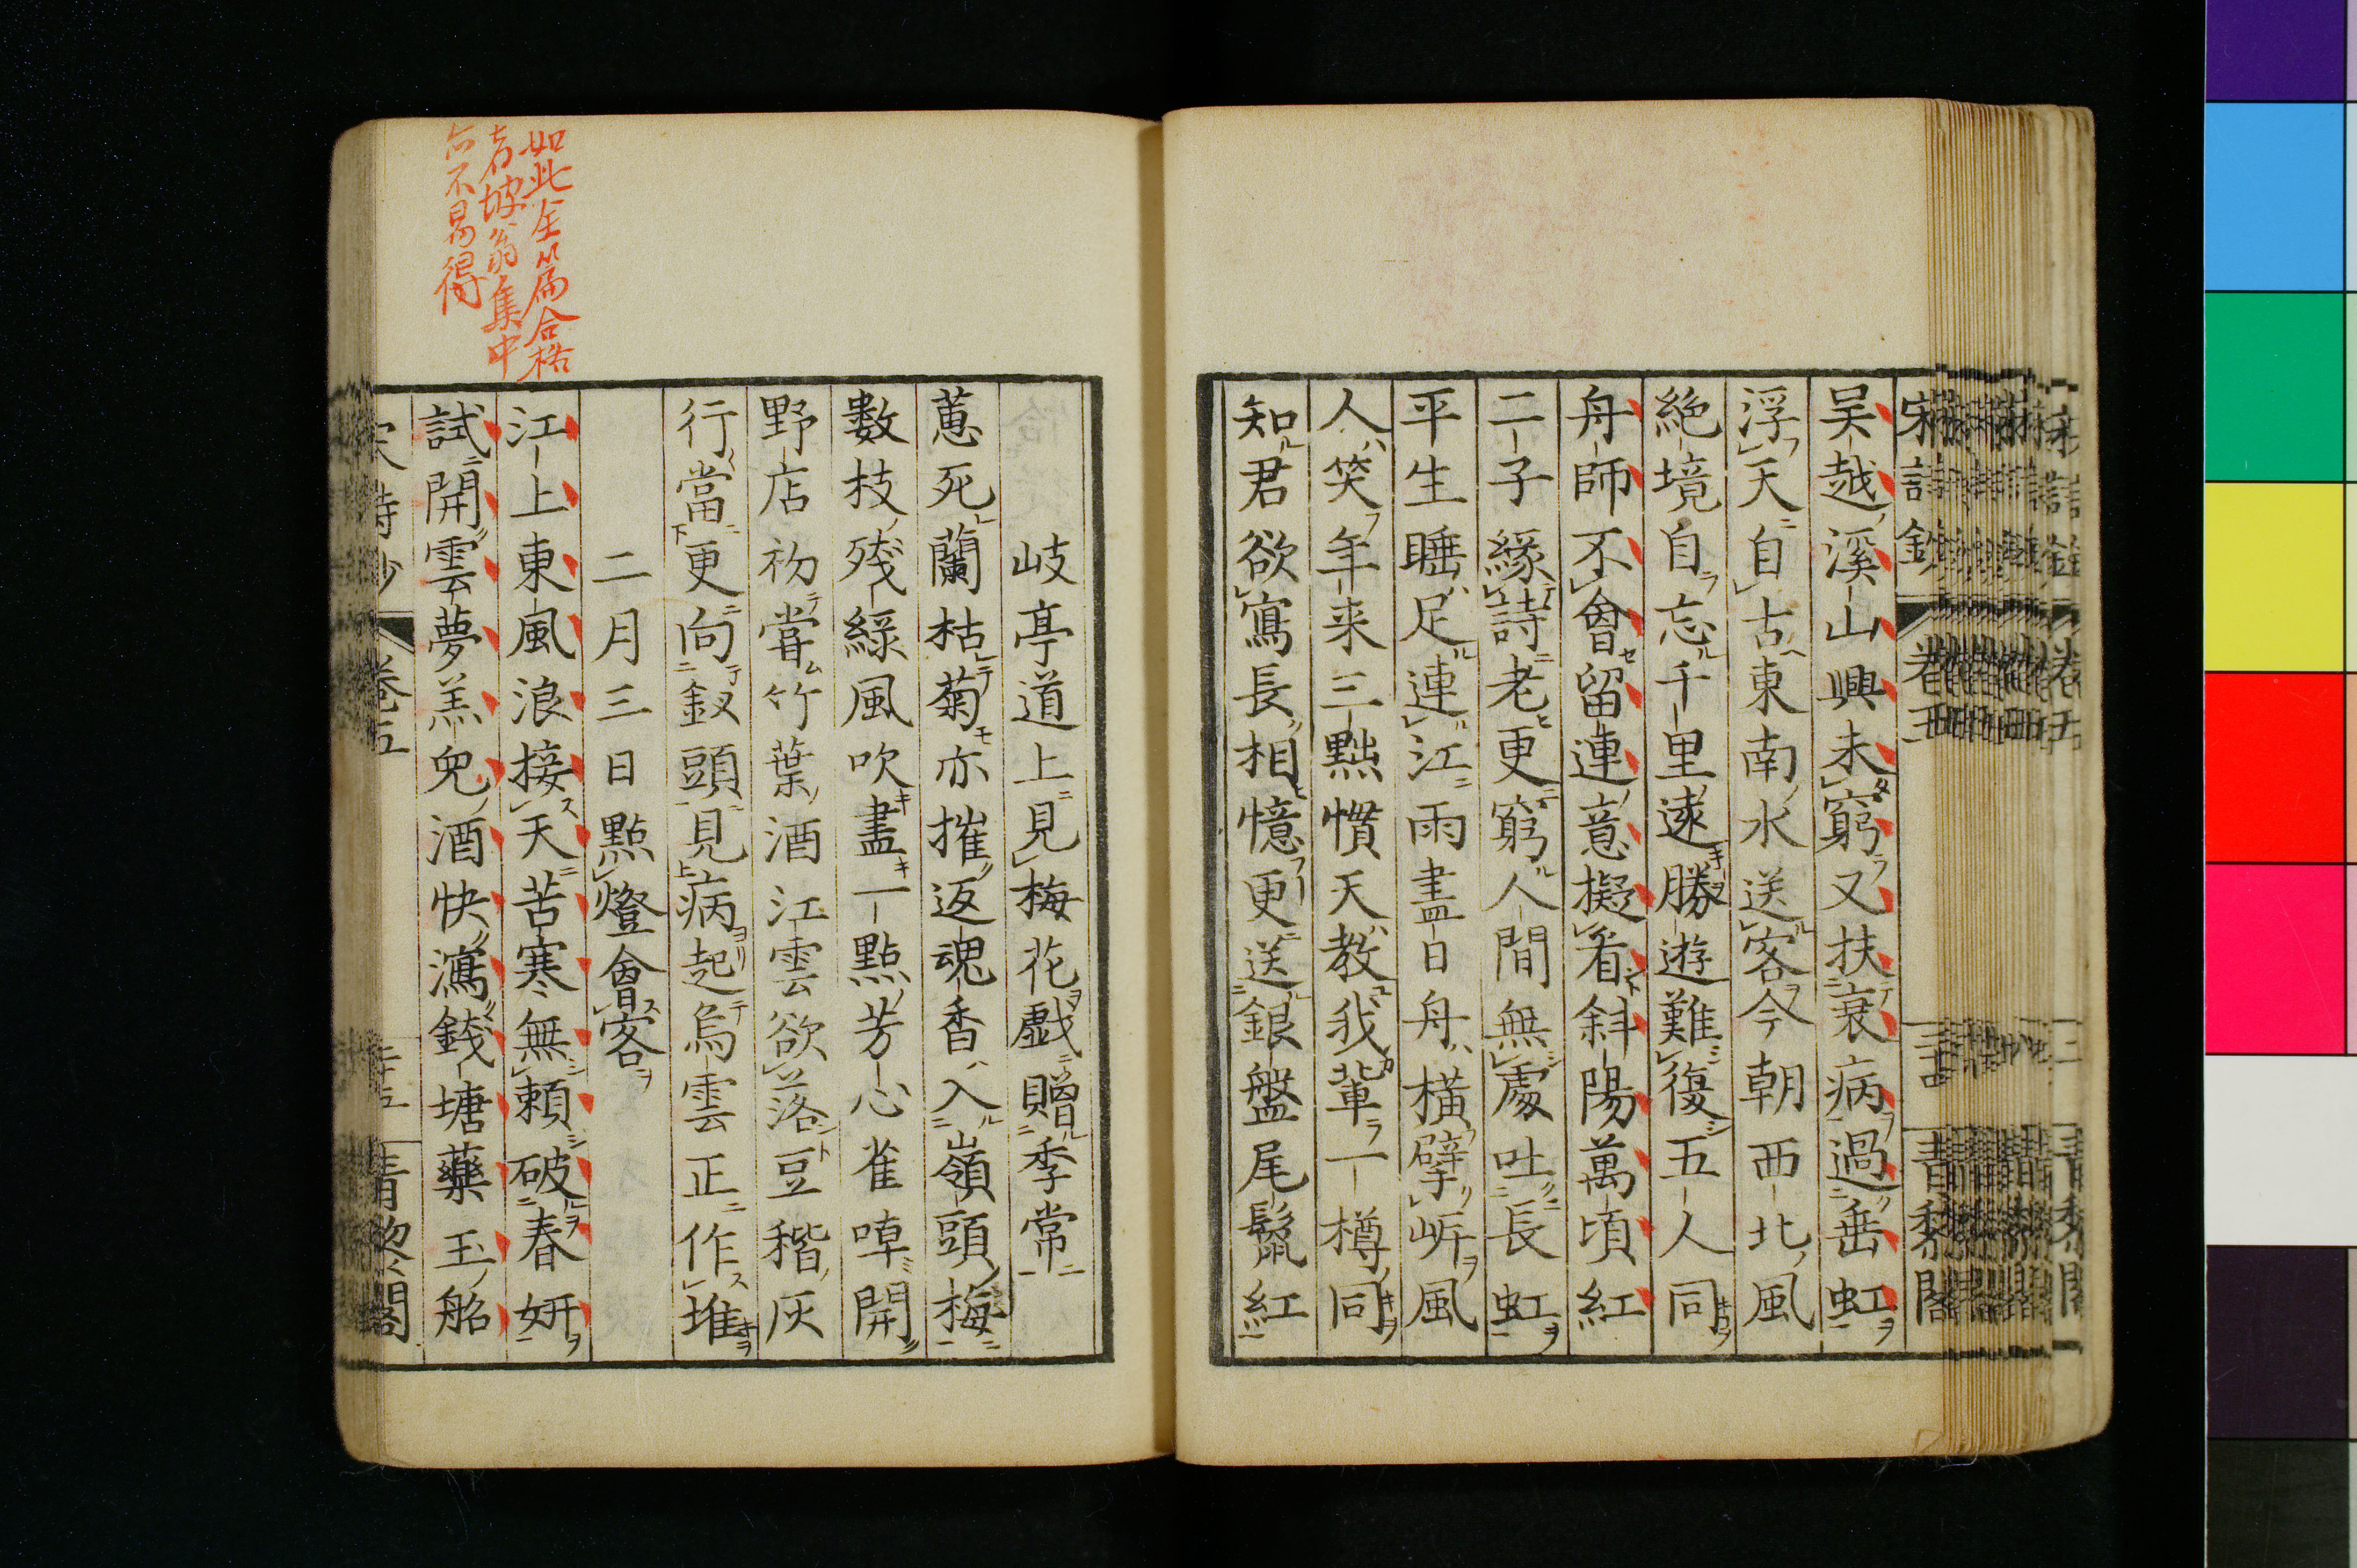 吴越溪山興未窮又扶衰病過垂虹
浮天自古東南水送客今朝西北風
絶境自忘千里遠勝遊難復五人同
舟師不會留連意擬看斜陽萬頃紅
二子緣詩老更窮人間無處吐長虹
平生睡足連江雨盡日舟橫擘岍風
人笑年来三黜慣天教我輩一樽同
知君欲寫長相憶更送銀盤尾鬣紅
岐亭道上見梅花戯贈季常
蕙死蘭枯菊亦摧返魂香入嶺頭梅
數枝殘綠風吹盡一點芳心雀啅開
野店初嘗竹葉酒江雲欲落豆稭灰
行當更向釵頭見病起烏雲正作堆
二月三日點燈會客
江上東風浪接天苦寒無頼破春妍
試開雲夢羔兒酒快瀉錢塘藥玉船
如此全篇合格
者坡翁集中
亦不易得